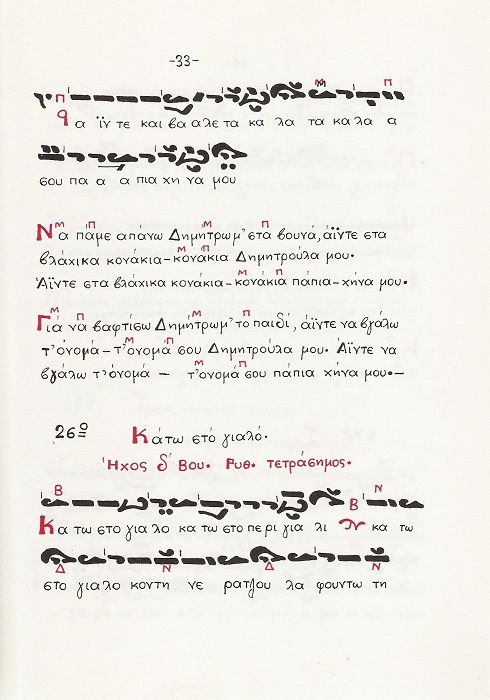 -33-
α ϊν τε και βα α λε τα κα λα τα κα λα α
σου πα α α πια χη να μου
Να πάμε απάνω Δημητρωμ' στα βουνά, αϊντε στα
βλάχικα κονάκια-κονάκια Δημητρούλα μου.
Άϊντε στα βλάχικα κονάκια-κονάκια πάπια-χήνα μου.
Γιά να βαφτίσω Δημήτρωμ' το παιδί, αϊντε να βγάλω
τ' όνομά-τ' όνομα σου Δημητρούλα μου. Άϊντε να
βγάλω τ' όνομά - τ' ονομά σου πάπια χήνα μου.-
26º Κάτω στό γιαλό.
Ήχος δ' Βου. Ρυθ. τετράσημος.
Κα τω στο για λο κα τω στο πε ρι για λι κα τω
στο γιαλο κοντη νε ρατζου λα φουντω τη